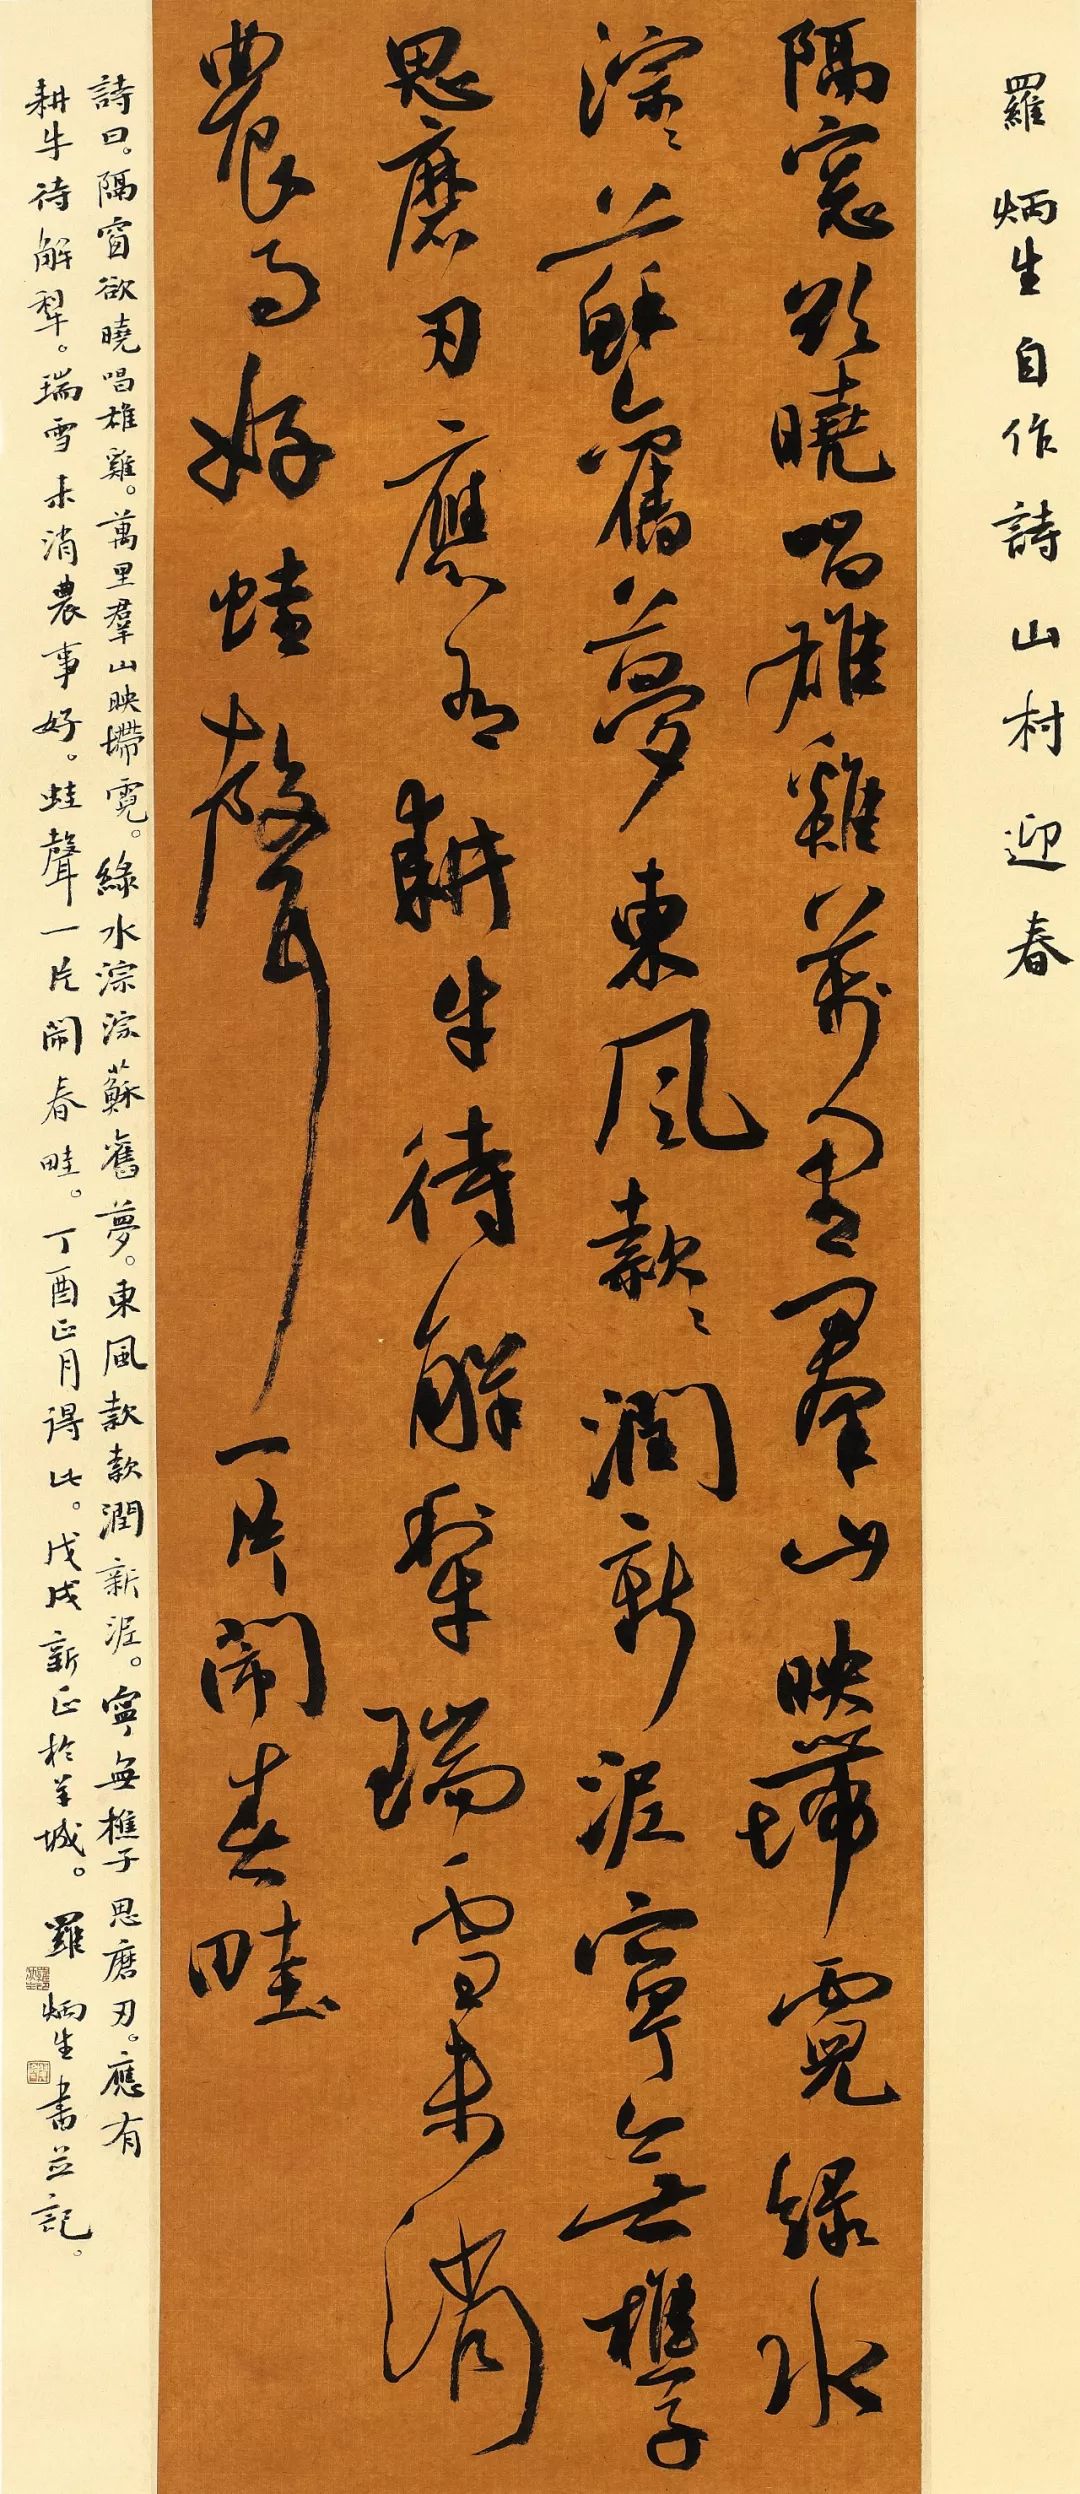 羅炳生自作詩山村迎春
隔窓欲曉唱雄雞萬里羣山映墆霓綠水
淙〻蘇舊夢東風款〻潤新泥寧無樵子
思磨刃應有耕牛待解犁瑞雪未消
農事好蛙聲一片鬧春畦
詩曰。隔窗欲曉唱雄雞。萬里羣山映墆霓。綠水淙淙蘇舊夢。東風款款潤新泥。寧無樵子思磨刃。應有
耕牛待解犁。瑞雪未消農事好。蛙聲一片鬧春畦。丁酉正月得此。戊戌新正於羊城。羅炳生書並記。